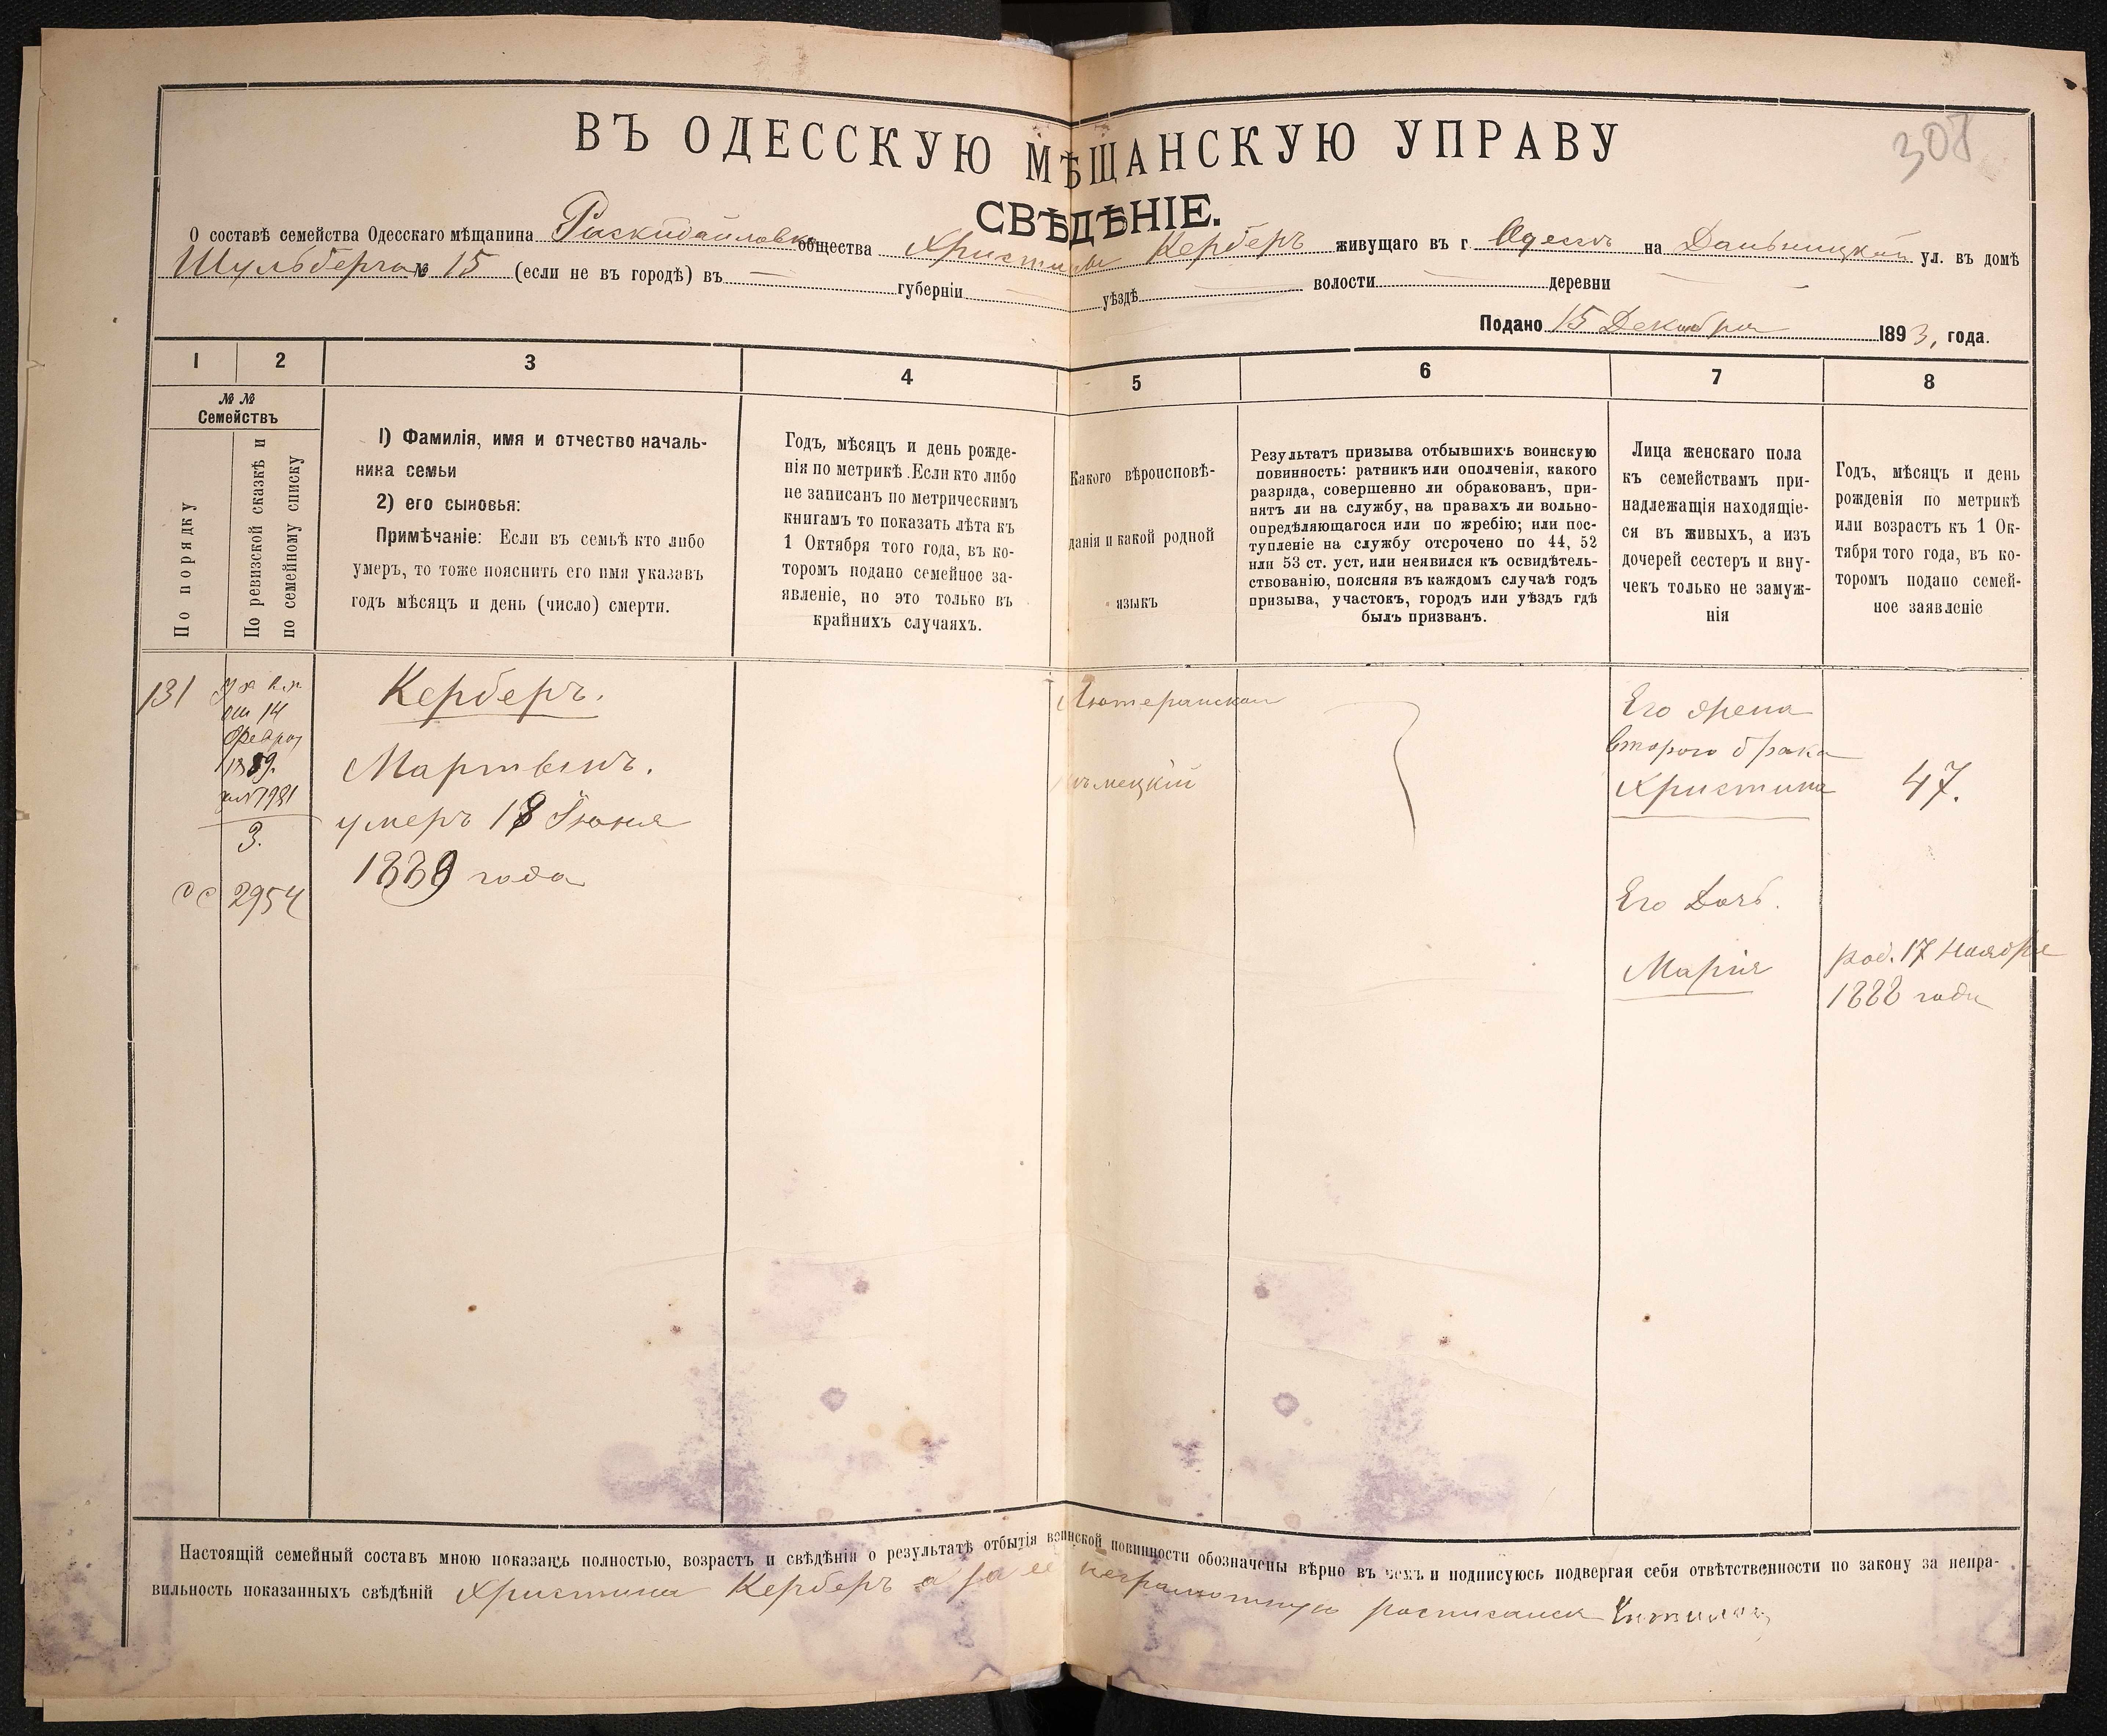 308
ВЪ ОДЕССКУЮ МѢЩАНСКУЮ УПРАВУ
СВѢДѢНІЕ.
О составѣ семейства Одесскаго мѣщанина Раскидайловка общества Христины Керберъ живущаго въ г. Одессѣ на Дальницкой ул. въ домѣ
Шульберга № 15 (если не въ городѣ) въ — губерніи — уѣздѣ — волости — деревни —
Подано 15 Декабря 1893, года.
1 2 3 4 5 6 7 8
№ № Семействъ
По порядку
По ревизской сказкѣ и
по семейному списку
1) Фамилія, имя и отчество началь-
ника семьи
2) его сыновья:
Примѣчаніе: Если въ семьѣ кто либо
умеръ, то тоже пояснить его имя указавъ
годъ мѣсяцъ и день (число) смерти.
Годъ, мѣсяцъ и день рожде-
нія по метрикѣ. Если кто либо
не записанъ по метрическимъ
книгамъ то показать лѣта къ
1 Октября того года, въ ко-
торомъ подано семейное за-
явленіе, но это только въ
крайнихъ случаяхъ.
Какого вѣроисповѣ-
данія и какой родной
языкъ
Результатъ призыва отбывшихъ воинскую
повинность: ратникъ или ополченія, какого
разряда, совершенно ли обракованъ, при-
нятъ ли на службу, на правахъ ли вольно-
опредѣляющагося или по жребію; или пос-
тупленіе на службу отсрочено по 44, 52
или 53 ст. уст, или неявился къ освидѣтель-
ствованію, поясняя въ каждомъ случаѣ годъ
призыва, участокъ, городъ или уѣздъ гдѣ
былъ призванъ.
Лица женскаго пола
къ семействамъ при-
надлежащія находящіе-
ся въ живыхъ, а изъ
дочерей сестеръ и вну-
чекъ только не замуж-
нія
Годъ, мѣсяцъ и день
рожденія по метрикѣ
или возрастъ къ 1 Ок-
тября того года, въ ко-
торомъ подано семей-
ное заявленіе
131
от 14
1889.
3.
2954
Керберъ.
Мартынъ.
умеръ 18 Іюня
1889 года
Лютеранскаго
нѣмецкій
Его жена
Второго брака
Христина
47.
Его Дочь.
Марія
род. 17 Ноября
1888 года
Настоящій семейный составъ мною показанъ полностью, возрастъ и свѣдѣнія о результатѣ отбытія воинской повинности обозначены вѣрно въ чемъ и подписуюсь подвергая себя отвѣтственности по закону за непра-
вильность показанныхъ свѣдѣній Христина Керберъ а за ее неграмотную